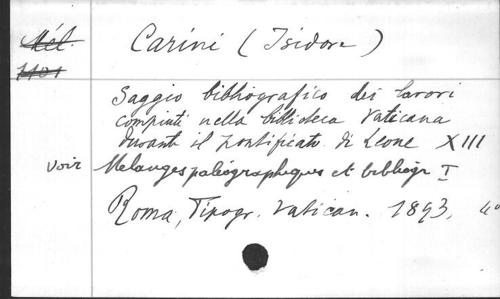 Mél. Carini (Isidore)
1101
Saggio bibliografico dei lavori
compiuti nella biblioteca Vaticana
durante il pontificato di Leone XIII
voir Mélanges paléographiques et bibliogr I
Roma, Tipogr. Vatican. 1893, 4°